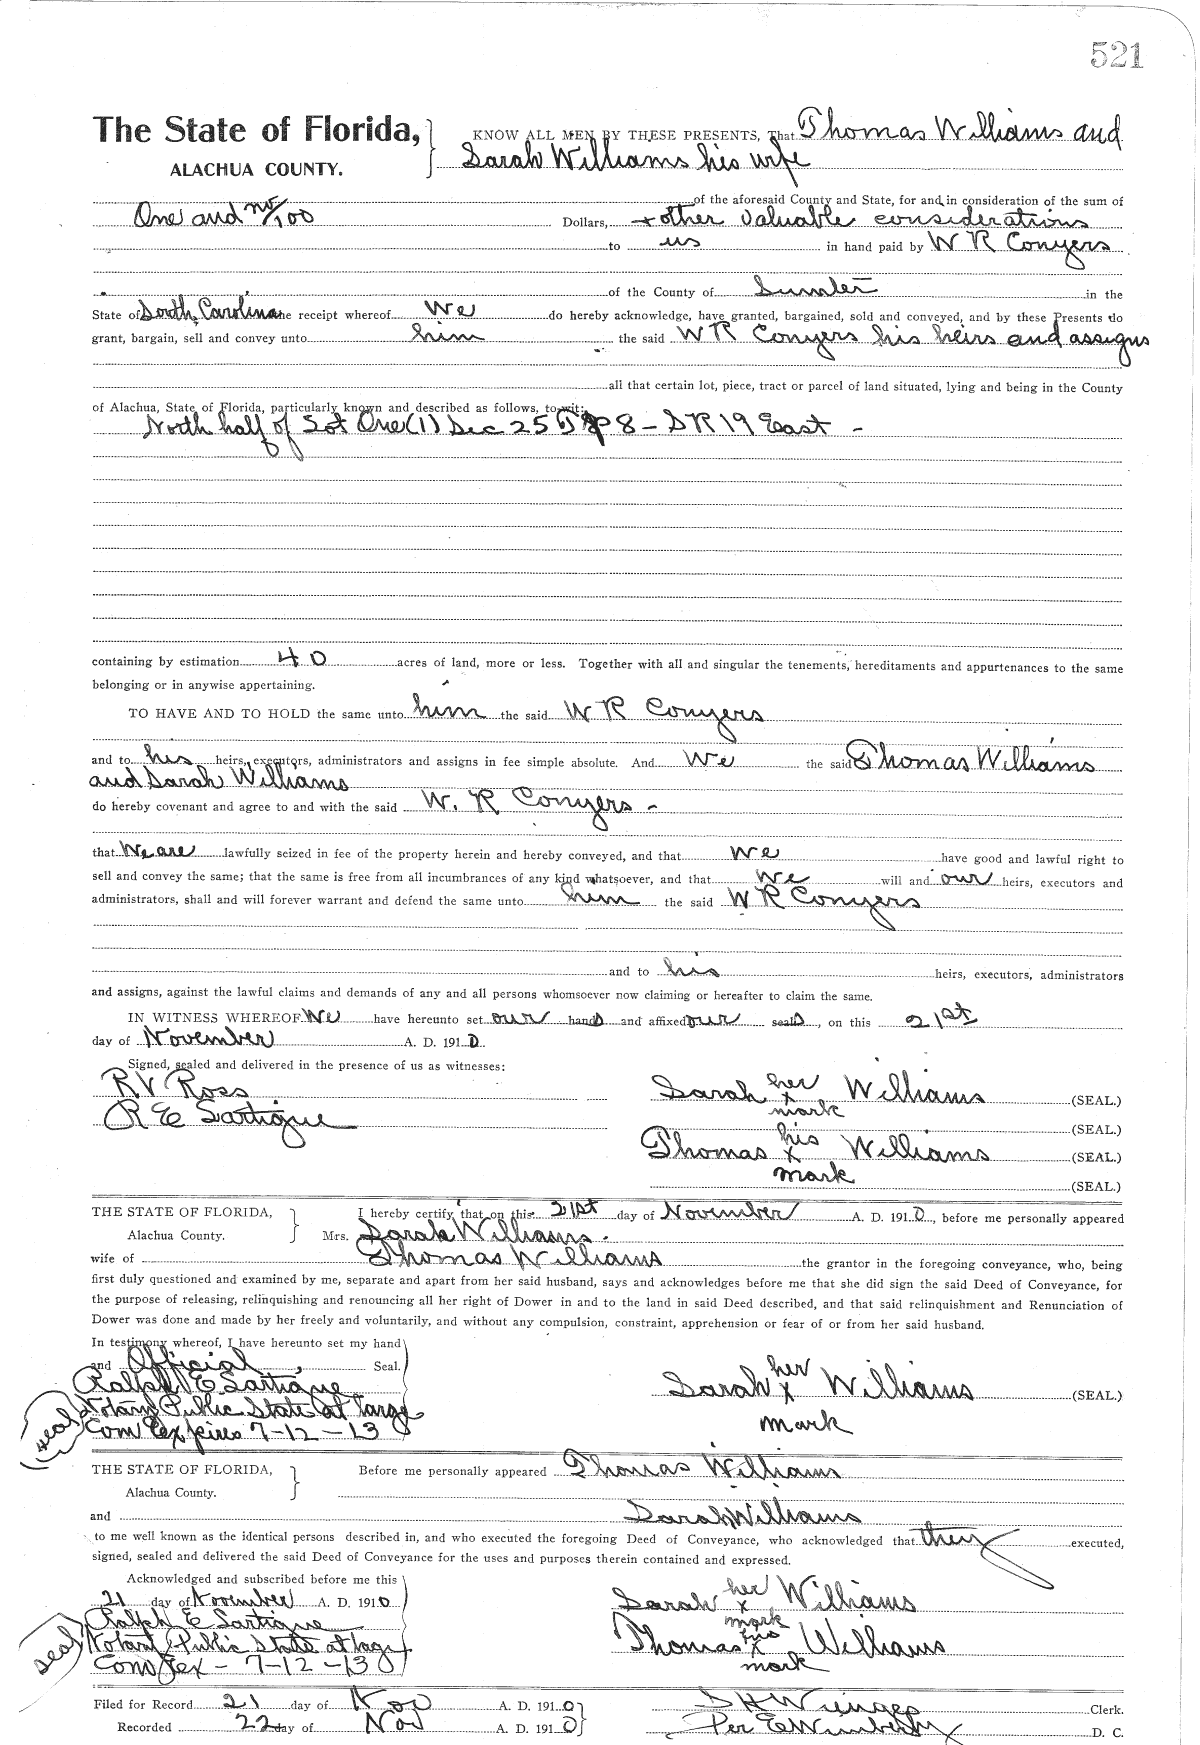 521
The State of Florida, KNOW ALL MEN BY THESE PRESENTS, That Thomas Williams and
ALACHUA COUNTY. Sarah Williams his wife
of the aforesaid County and State, for and in consideration of the sum of
One and no/100 Dollars, + other valuable considerations
to us in hand paid by W R Conyers
of the County of Sumter in the
State of South Carolina the receipt whereof We do hereby acknowledge, have granted, bargained, sold and conveyed, and by these Presents do
grant, bargain, sell and convey unto him the said W R Conyers his heirs and assigns
all that certain lot, piece, tract or parcel of land situated, lying and being in the County
of Alachua, State of Florida, particularly known and described as follows, to-wit:
North half of Lot One (1) Sec 25 Tp 8 - S R 19 East -
containing by estimation 40 acres of land, more or less. Together with all and singular the tenements, hereditaments and appurtenances to the same
belonging or in anywise appertaining.
TO HAVE AND TO HOLD the same unto him the said W R Conyers
and to his heirs, executors, administrators and assigns in fee simple absolute. And We the said Thomas Williams
and Sarah Williams
do hereby covenant and agree to and with the said W. R Conyers -
that We are lawfully seized in fee of the property herein and hereby conveyed, and that we have good and lawful right to
sell and convey the same; that the same is free from all incumbrances of any kind whatsoever, and that we will and our heirs, executors and
administrators, shall and will forever warrant and defend the same unto him the said W R Conyers
and to his heirs, executors, administrators
and assigns, against the lawful claims and demands of any and all persons whomsoever now claiming or hereafter to claim the same.
IN WITNESS WHEREOF We have hereunto set our hands and affixed our seals, on this 21st
day of November A. D. 1910.
Signed, sealed and delivered in the presence of us as witnesses:
R V Ross Sarah her x mark Williams (SEAL.)
R E Sartique (SEAL.)
Thomas his x mark Williams (SEAL.)
(SEAL.)
THE STATE OF FLORIDA, I hereby certify that on this 21st day of November A. D. 1910, before me personally appeared
Alachua County. Mrs. Sarah Williams.
wife of Thomas Williams the grantor in the foregoing conveyance, who, being
first duly questioned and examined by me, separate and apart from her said husband, says and acknowledges before me that she did sign the said Deed of Conveyance, for
the purpose of releasing, relinquishing and renouncing all her right of Dower in and to the land in said Deed described, and that said relinquishment and Renunciation of
Dower was done and made by her freely and voluntarily, and without any compulsion, constraint, apprehension or fear of or from her said husband.
In testimony whereof, I have hereunto set my hand
and Official, Seal.
Ralph E Sartique Sarah her x mark Williams (SEAL.)
(Seal) Notary Public State at large
Com Expires 7-12-13
THE STATE OF FLORIDA, Before me personally appeared Thomas Williams
Alachua County.
and Sarah Williams
to me well known as the identical persons described in, and who executed the foregoing Deed of Conveyance, who acknowledged that they executed,
signed, sealed and delivered the said Deed of Conveyance for the uses and purposes therein contained and expressed.
Acknowledged and subscribed before me this
21 day of November A. D. 1910 Sarah her x mark Williams
Ralph E Sartique
(Seal) Notary Public State at large Thomas his x mark Williams
Com Ex - 7-12-13
Filed for Record 21 day of Nov A. D. 1910 S H Wienges Clerk.
Recorded 22 day of Nov A. D. 1910 Per E Wimberly D. C.